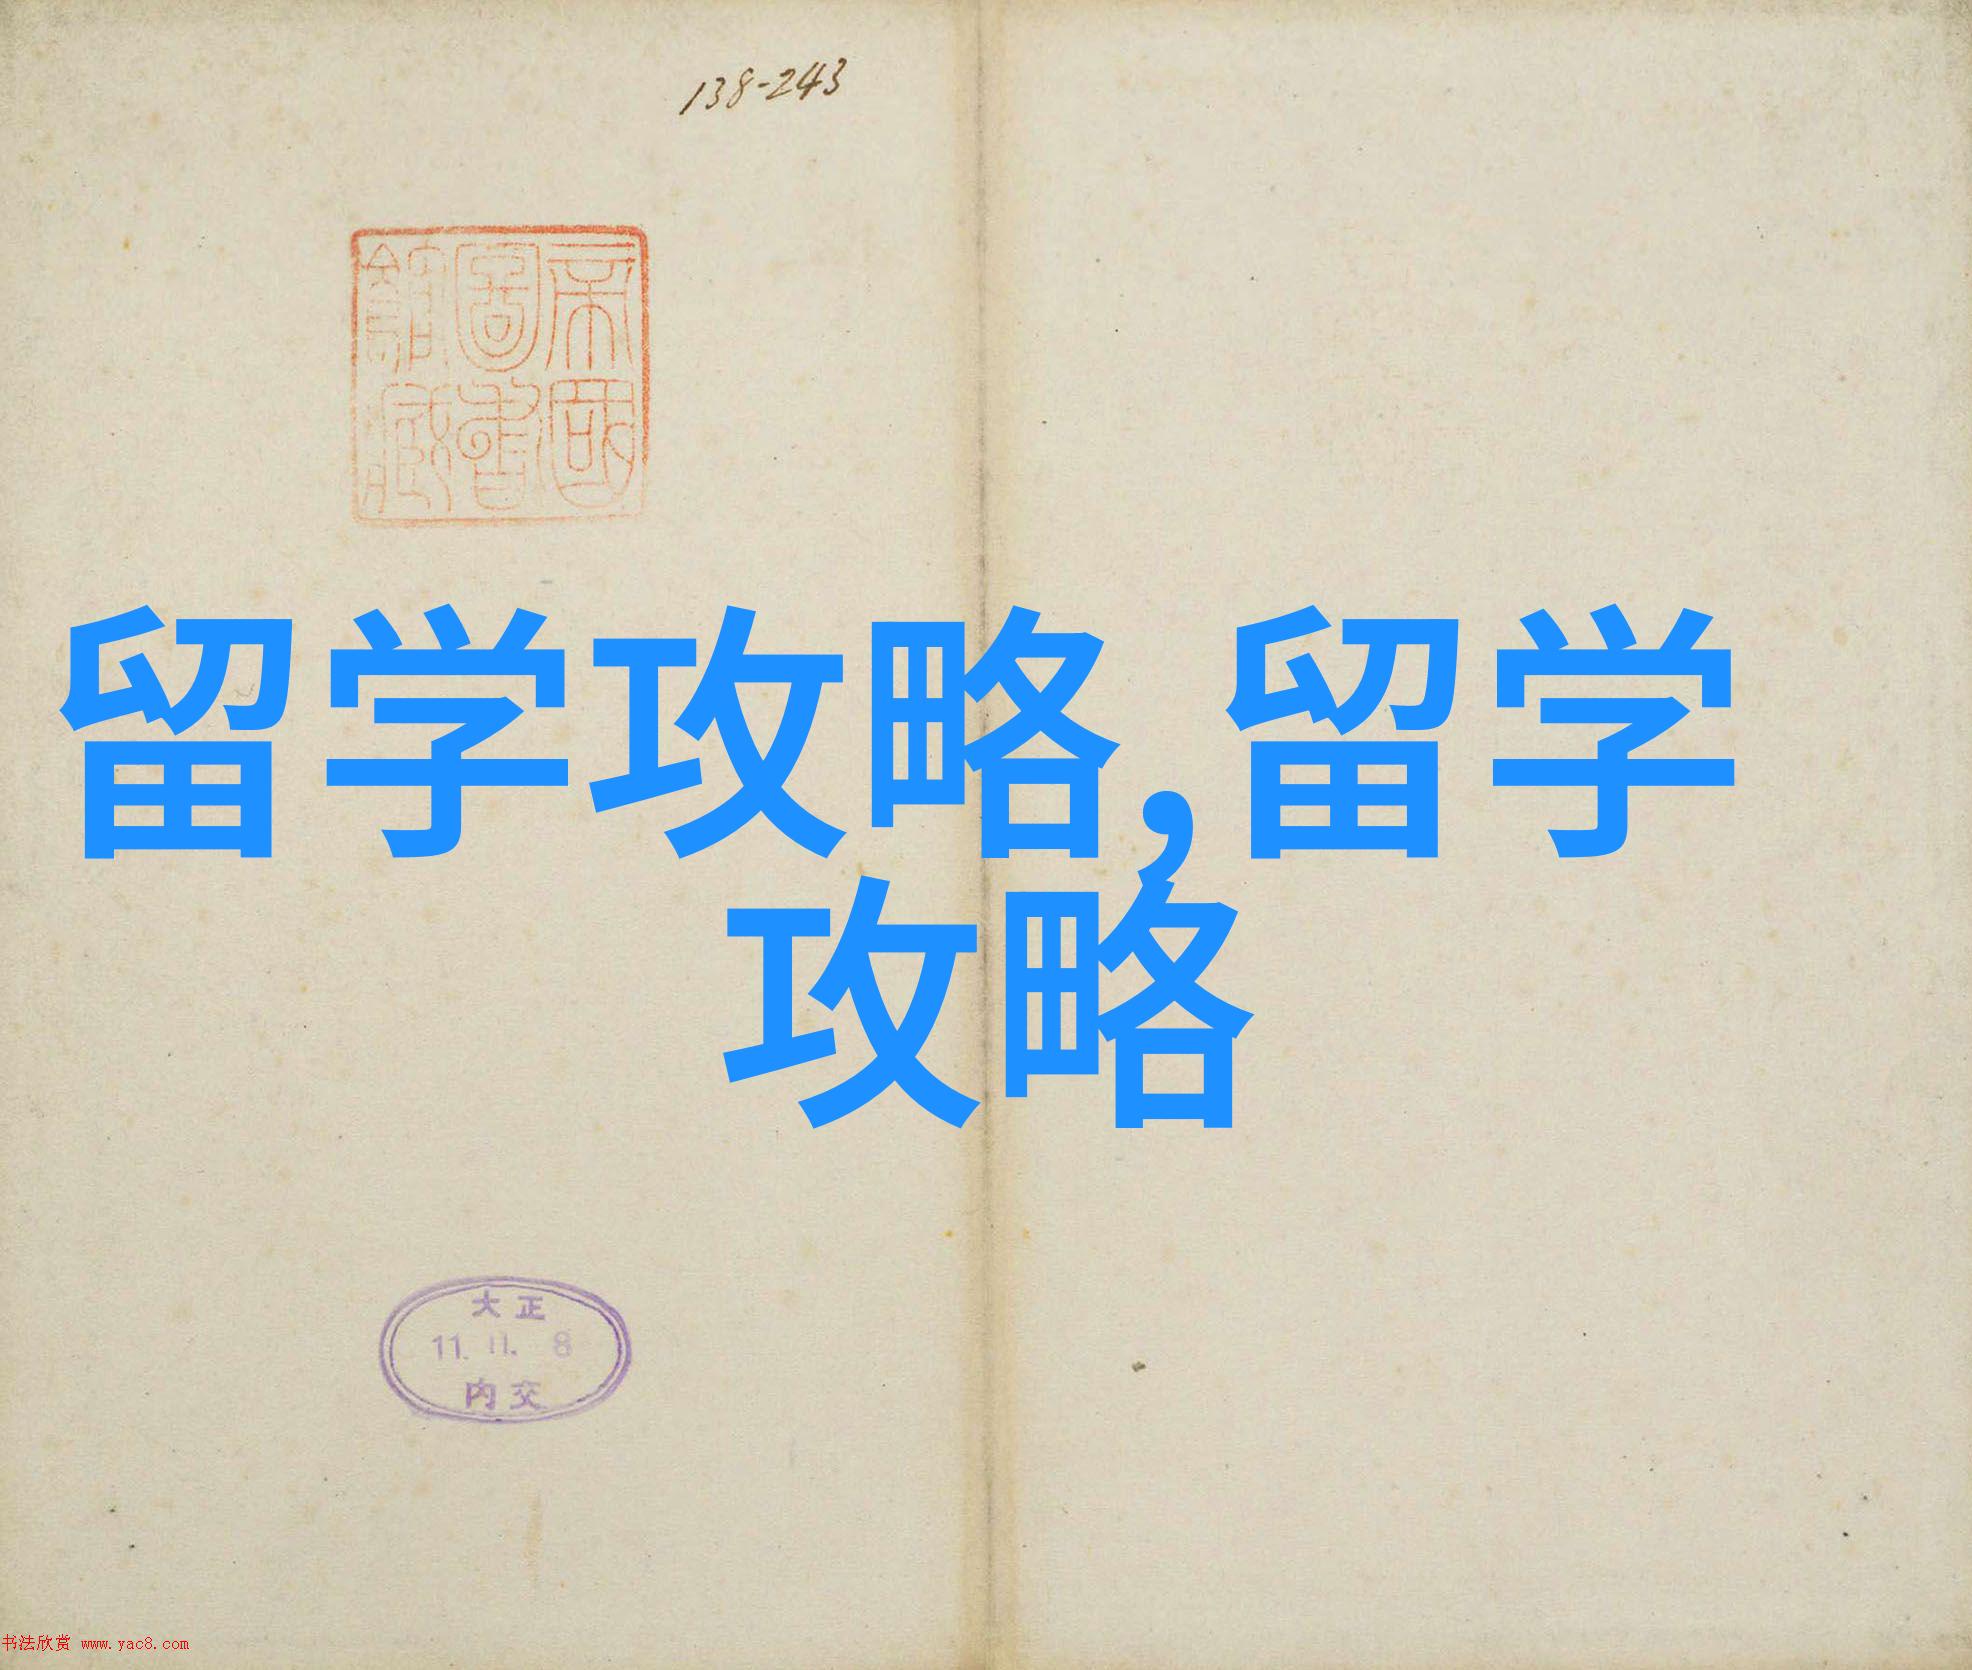 138-243
帝國
圖書
館藏
留学攻略,留学
攻略
大正
11.11.8
内交
书法欣赏 www.yac8.com